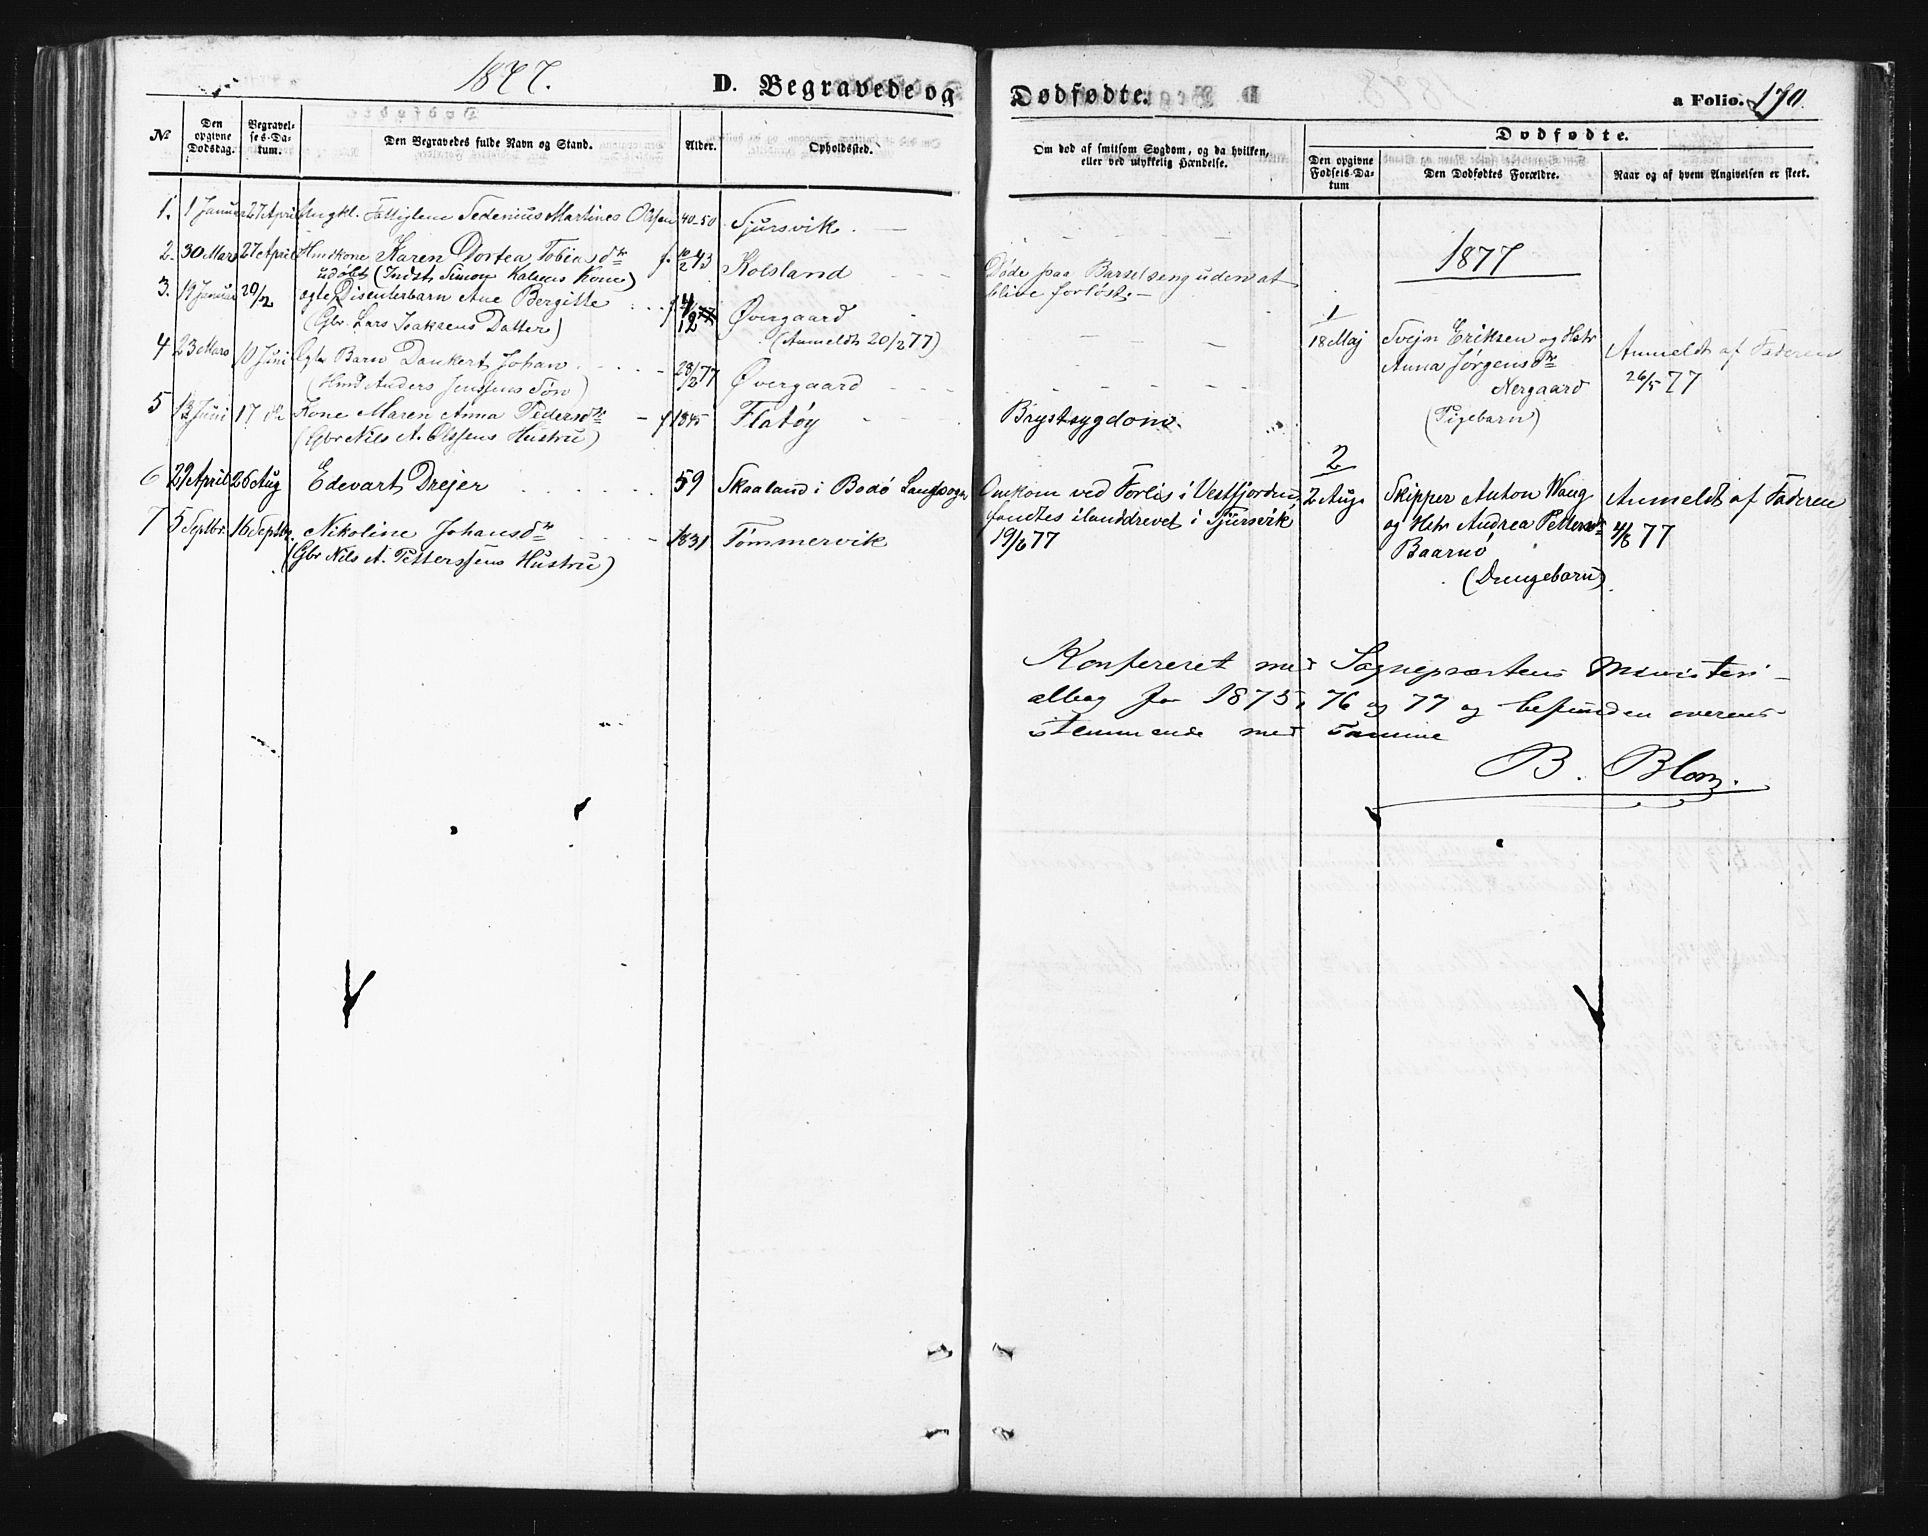 1877.
D. Begravede og Dødfødte.
a Folio. 190.
No
Den opgivne Dødsdag.
Begravelses-Datum.
Den Begravedes fulde Navn og Stand.
Alder.
Opholdssted.
Om død af smitsom Sygdom, og da hvilken, eller ved ulykkelig Hændelse.
Dødfødte.
Den opgivne Fødsels-Datum
Den Dødfødtes Forældre.
Naar og af hvem Angivelsen er skeet.
1. 1 Januar 27 April Ungkl. Fattiglem Sedenius Martines Olsen 40-50 Sjursvik. —
2. 30 Mars 27 April Hmdkone Karen Dortea Tobiasdtr f. 10/2 43 Kolsland Døde paa Barselseng uden at
(Indst. Simon Kone) blive forløst. —
3. 19 Januar 20/2 ægte Disenterbarn Ane Bergitte f. 4/12 77 Øvergaard
(Gbr. Lars Isaksens Datter) (Anmeldt 20/2 77)
4 23 Mars 10 Juni Ægte Barn Dankert Johan 28/2 77 Øvergaard
(Hmd Anders Jenssens Søn)
5 13 Juni 17 do Kone Maren Anna Pedersdtr f 1845 Flatøy Brystsygdom.
(Gbr Nils A. Olssens Hustru)
6 29 April 26 Aug Edevart Drejer 59 Skaaland i Bodø Landsogn Omkom ved Forlis i Vestfjorden,
fandtes ilanddrevet i Sjursvik
19/6 77
7 5 Septbr. 16 Septbr. Nikoline Johansdtr 1831 Tømmervik
(Gbr Nils A. Petterssens Hustru)
1877
1
18 Maj Svejn Eriksen og Hstr Anmeldt af Faderen
Anna Jørgensdtr 26/5 77
Nergaard
(Pigebarn)
2
2 Aug Skipper Anton Wang Anmeldt af Faderen
og Hstr Andrea Pettersdtr 4/8 77
Baarnø
(Drengebarn)
Konfereret med Sognepræstens Ministeri-
albog for 1875, 76 og 77 og befunden overens-
stemmende med samme
B. Blom.